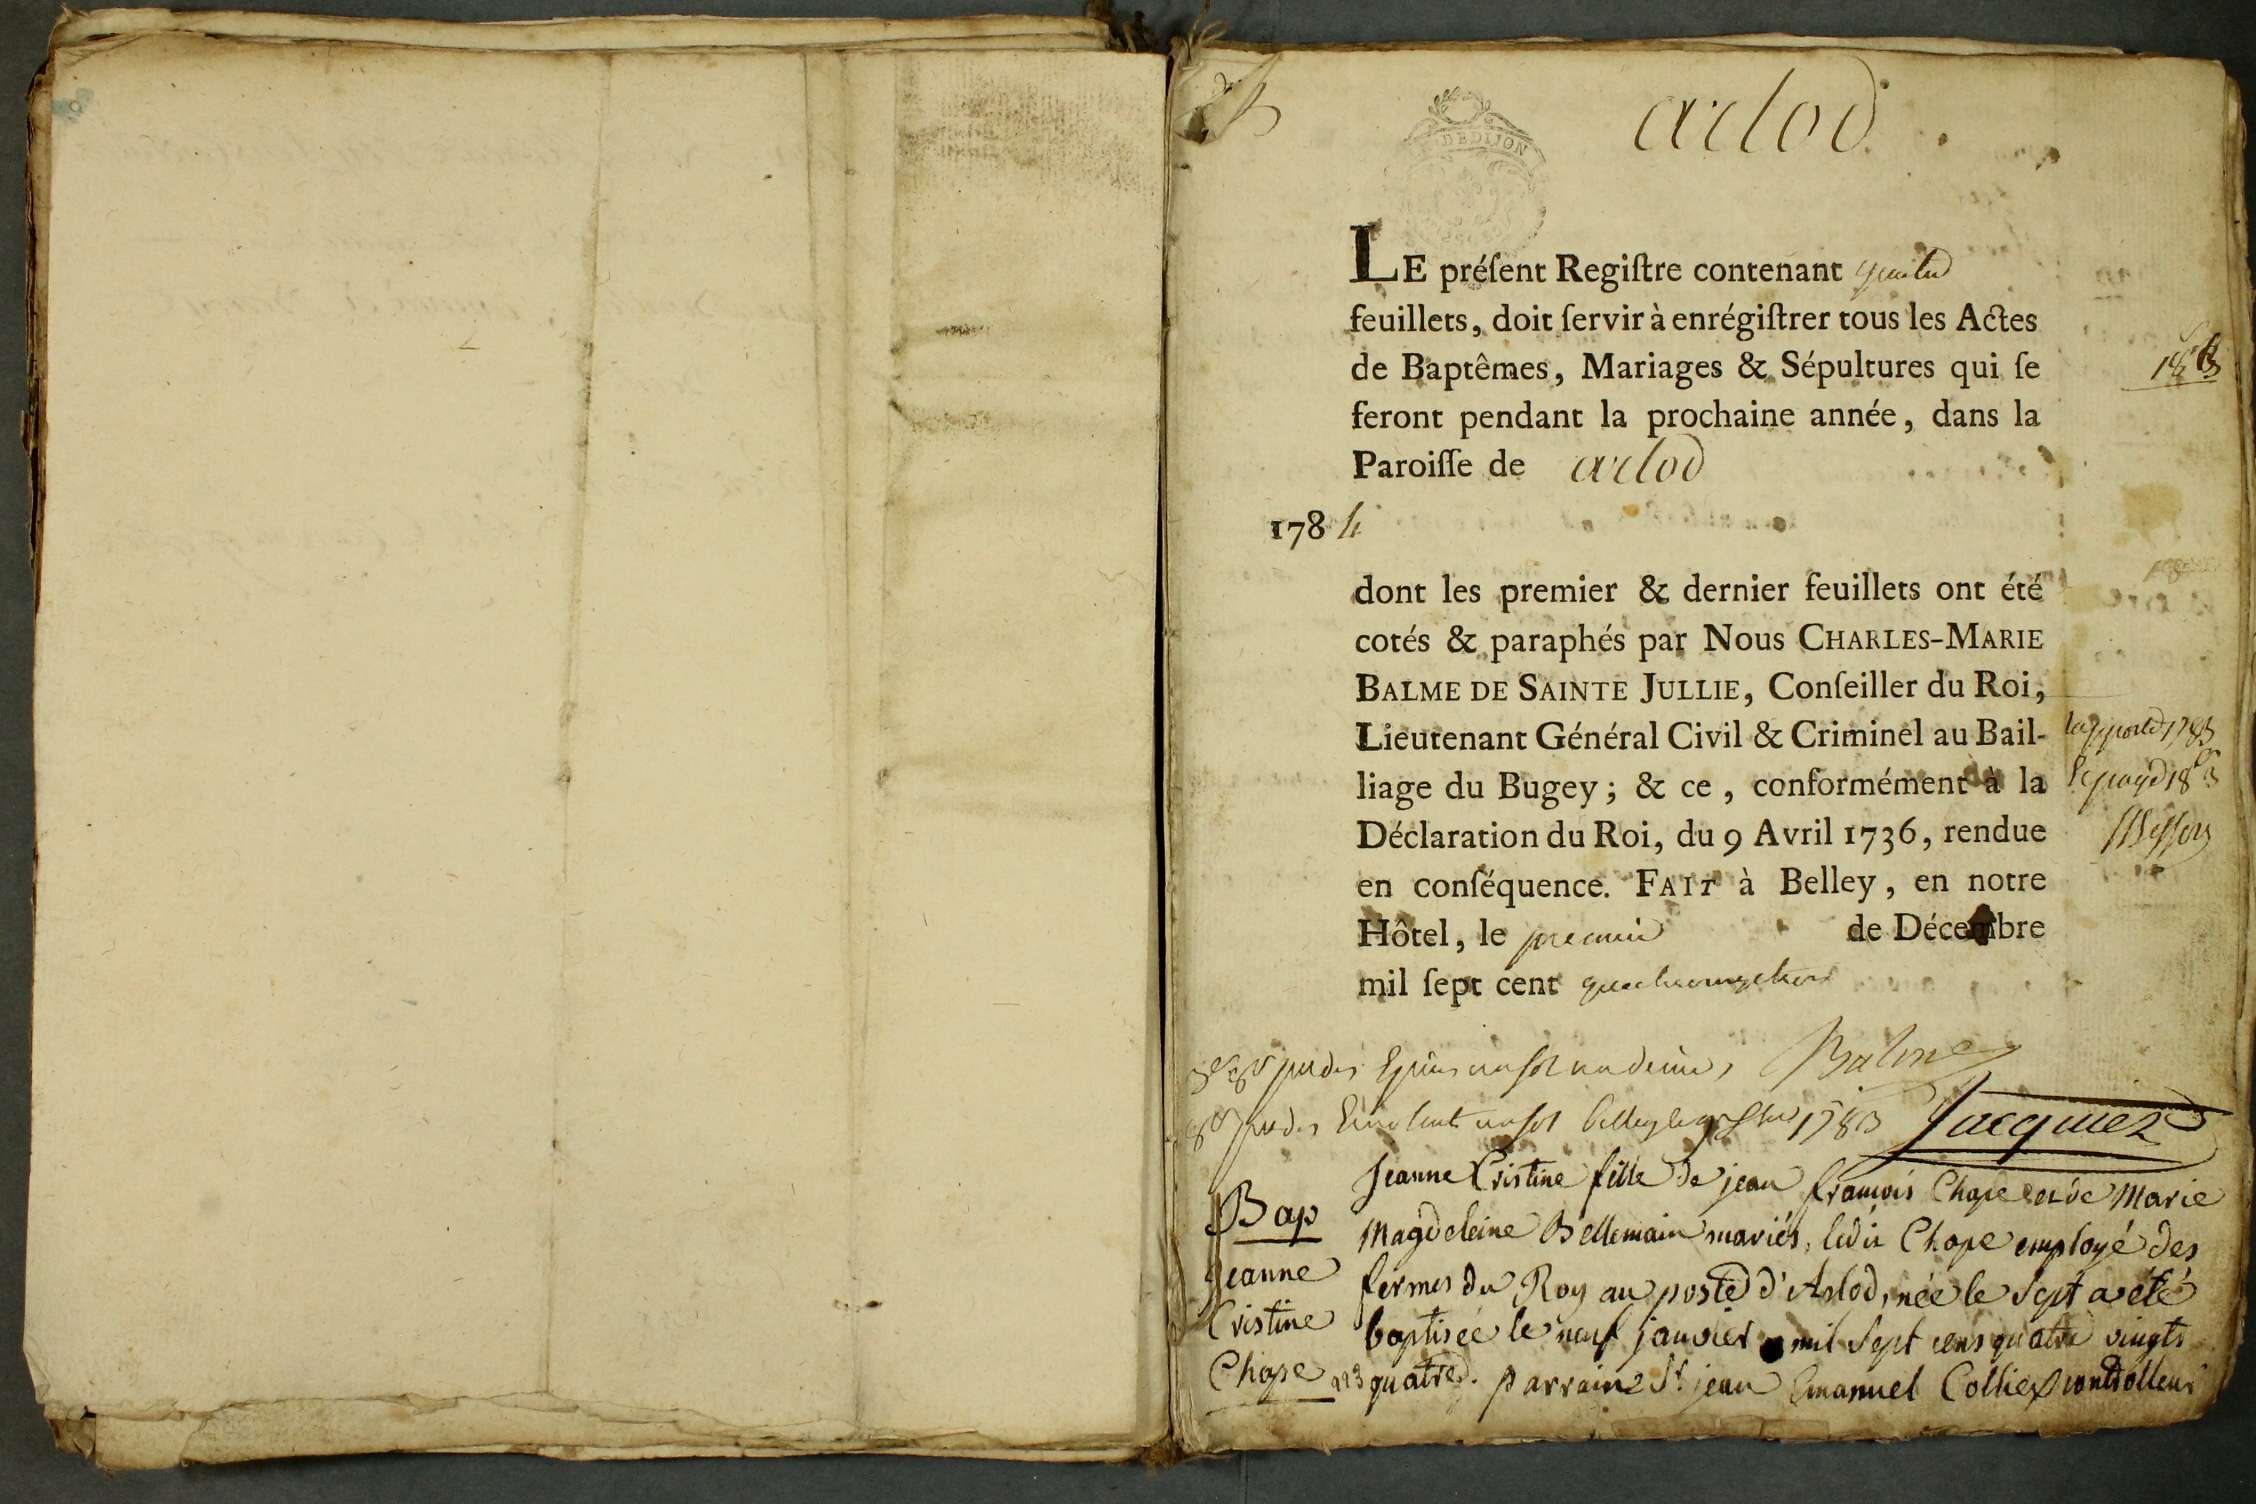 arlod
DEDIJON
LE préſent Regiſtre contenant
feuillets, doit ſervir à enrégiſtrer tous les Actes
de Baptêmes, Mariages & Sépultures qui ſe
feront pendant la prochaine année, dans la
Paroiſſe de arlod
1784
dont les premier & dernier feuillets ont été
cotés & paraphés par Nous CHARLES-MARIE
BALME DE SAINTE JULLIE, Conſeiller du Roi,
Lieutenant Général Civil & Criminel au Bail-
liage du Bugey; & ce, conformément à la
Déclaration du Roi, du 9 Avril 1736, rendue
en conſéquence. FAIT à Belley, en notre
Hôtel, le premier de Décembre
mil ſept cent quatrevingt trois
Balme
1783 Jacquier
Bap
Jeanne
Cristine
Chape
Jeanne Cristine fille de jean francois Chape et de Marie
Magdeleine Bellemain mariés, ledit Chape employé des
fermes du Roy au poste d'Arlod, née le Sept a été
baptisée le neuf janvier mil Sept cens quatre vingts
quatre. parrain Sr jean Emanuel Collier controlleur